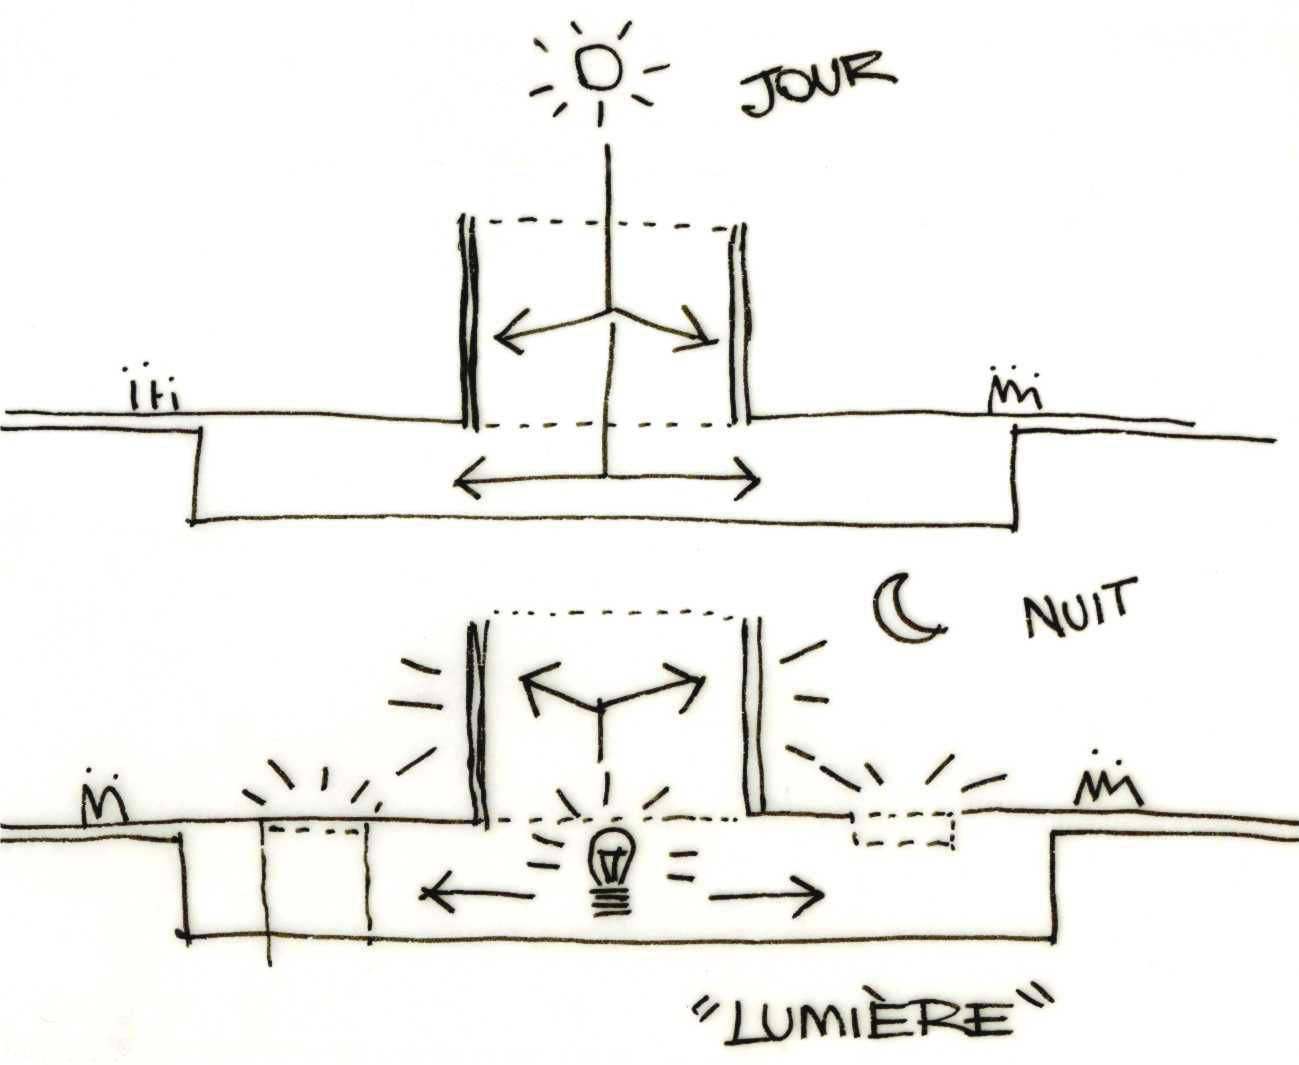 JOUR
NUIT
"LUMIÈRE"